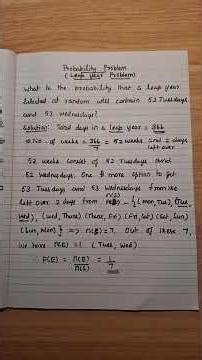 Probability Problem
(Leap year Problem)
What is the probability that a leap year
selected at random will contain 52 Tuesdays
and 53 wednesdays?
Solution: Total days in a leap year = 366
No. of weeks = 366/7 = 52 weeks and 2 days
left over
52 weeks consist of 52 Tuesdays and
52 Wednesdays. One more option to get
53 Tuesdays and 53 Wednesdays from the
left over 2 days from n(S) = {(Mon, Tue), (Tue,
Wed), (Wed, Thurs) (Thurs, Fri) (Fri, Sat) (Sat, Sun)
(Sun, Mon)} ⇒ n(S) = 7. Out of these 7,
we have n(E) = 1 (Tues, Wed)
∴ P(E) = n(E)/n(S) = 1/7